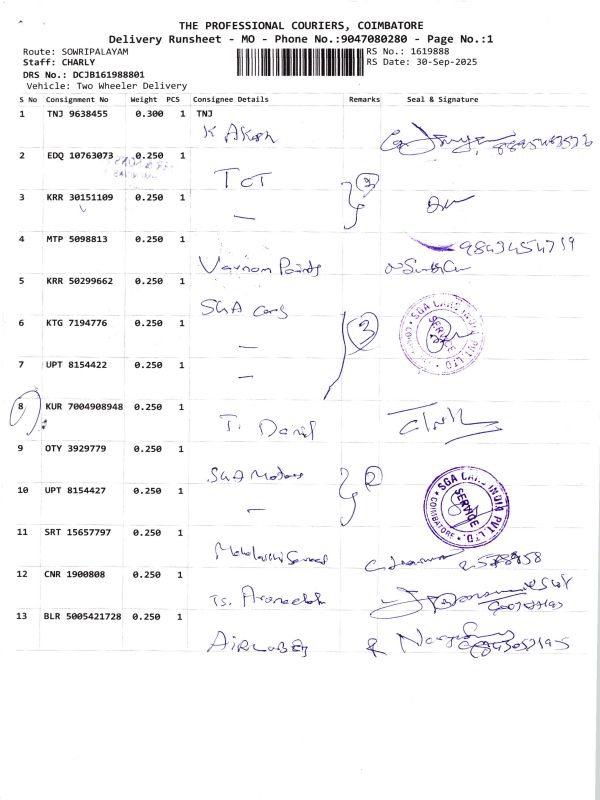 THE PROFESSIONAL COURIERS, COIMBATORE
Delivery Runsheet - MO - Phone No.:9047080280 - Page No.:1
Route: SOWRIPALAYAM
RS No.: 1619888
Staff: CHARLY
RS Date: 30-Sep-2025
DRS No.: DCJB161988801
Vehicle: Two Wheeler Delivery
S No Consignment No Weight PCS Consignee Details Remarks Seal & Signature
1 TNJ 9638455 0.300 1 TNJ
K Akash
2 EDQ 10763073 0.250 1
TCT
3 KRR 30151109 0.250 1
—
2
4 MTP 5098813 0.250 1
9843454719
Varnam Paints
5 KRR 50299662 0.250 1
SGA Cars
SGA CARS INDIA PVT. LTD.
SERVICE
6 KTG 7194776 0.250 1
—
3
7 UPT 8154422 0.250 1
—
8 KUR 7004908948 0.250 1
T. Daniel
9 OTY 3929779 0.250 1
SGA Motors
2
SGA CARS INDIA PVT. LTD.
SERVICE
COIMBATORE
10 UPT 8154427 0.250 1
—
11 SRT 15657797 0.250 1
12 CNR 1900808 0.250 1
13 BLR 5005421728 0.250 1